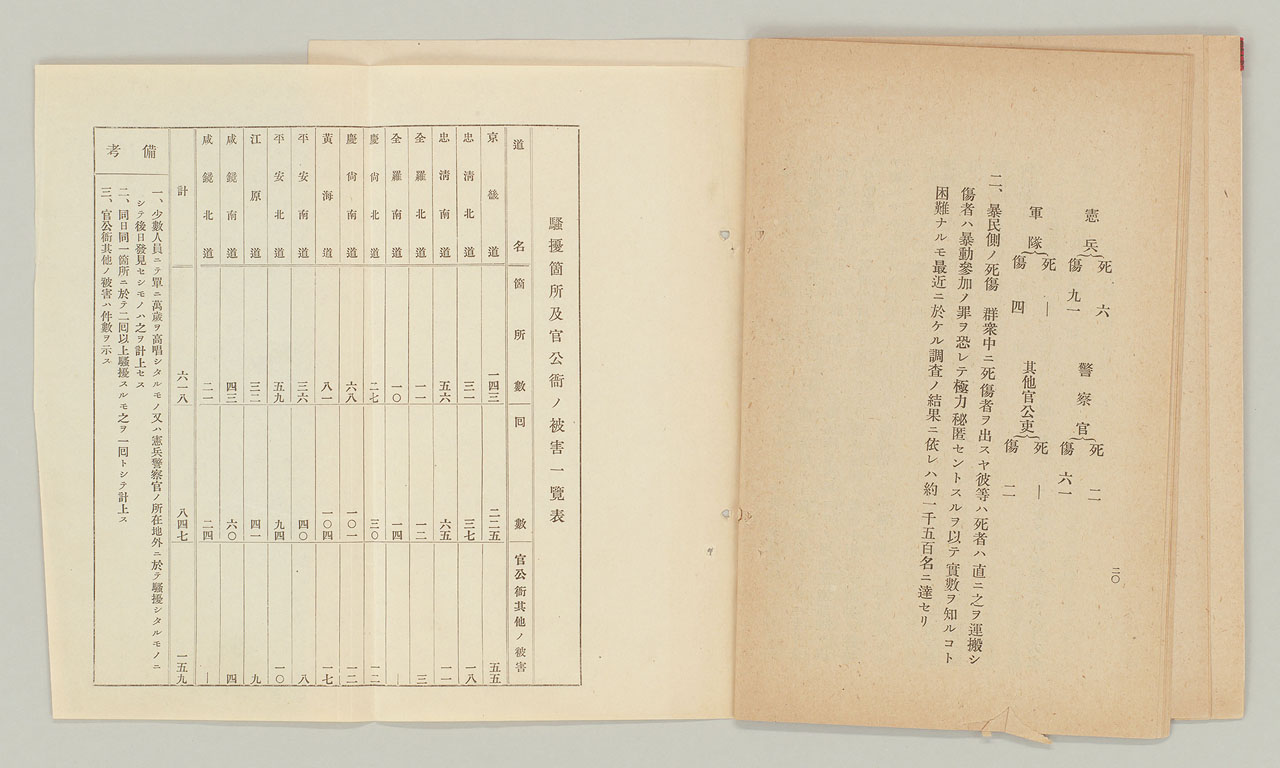 二〇
憲兵 死 六 傷 九一 警察官 死 二 傷 六一
軍隊 死 ― 傷 四 其他官公吏 死 ― 傷 二
二、暴民側ノ死傷 群衆中ニ死傷者ヲ出スヤ彼等ハ死者ハ直ニ之ヲ運搬シ
傷者ハ暴動參加ノ罪ヲ恐レテ極力秘匿セントスルヲ以テ實數ヲ知ルコト
困難ナルモ最近ニ於ケル調査ノ結果ニ依レハ約一千五百名ニ達セリ
騷擾箇所及官公衙ノ被害一覽表
道名 箇所數 回數 官公衙其他ノ被害
京畿道 一四三 二二五 五五
忠淸北道 三一 三七 一八
忠淸南道 五六 六五 一一
全羅北道 一一 一二 三
全羅南道 一〇 一四 ―
慶尙北道 二七 三〇 一二
慶尙南道 六八 一〇一 一二
黃海道 八一 一〇四 一七
平安南道 三六 四〇 八
平安北道 五九 九四 一〇
江原道 三二 四一 九
咸鏡南道 四三 六〇 四
咸鏡北道 二一 二四 ―
計 六一八 八四七 一五九
備考
一、少數人員ニテ單ニ萬歲ヲ高唱シタルモノ又ハ憲兵警察官ノ所在地外ニ於テ騷擾シタルモノニ
シテ後日發見セシモノハ之ヲ計上セス
二、同日同一箇所ニ於テ二回以上騷擾スルモ之ヲ一回トシテ計上ス
三、官公衙其他ノ被害ハ件數ヲ示ス